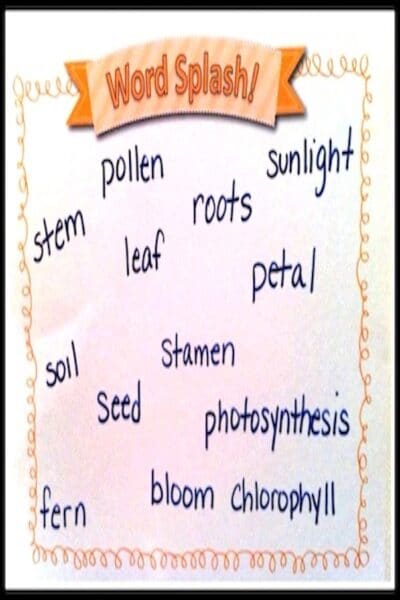 Word Splash!
pollen
sunlight
roots
stem
leaf
petal
soil
stamen
seed
photosynthesis
bloom
chlorophyll
fern